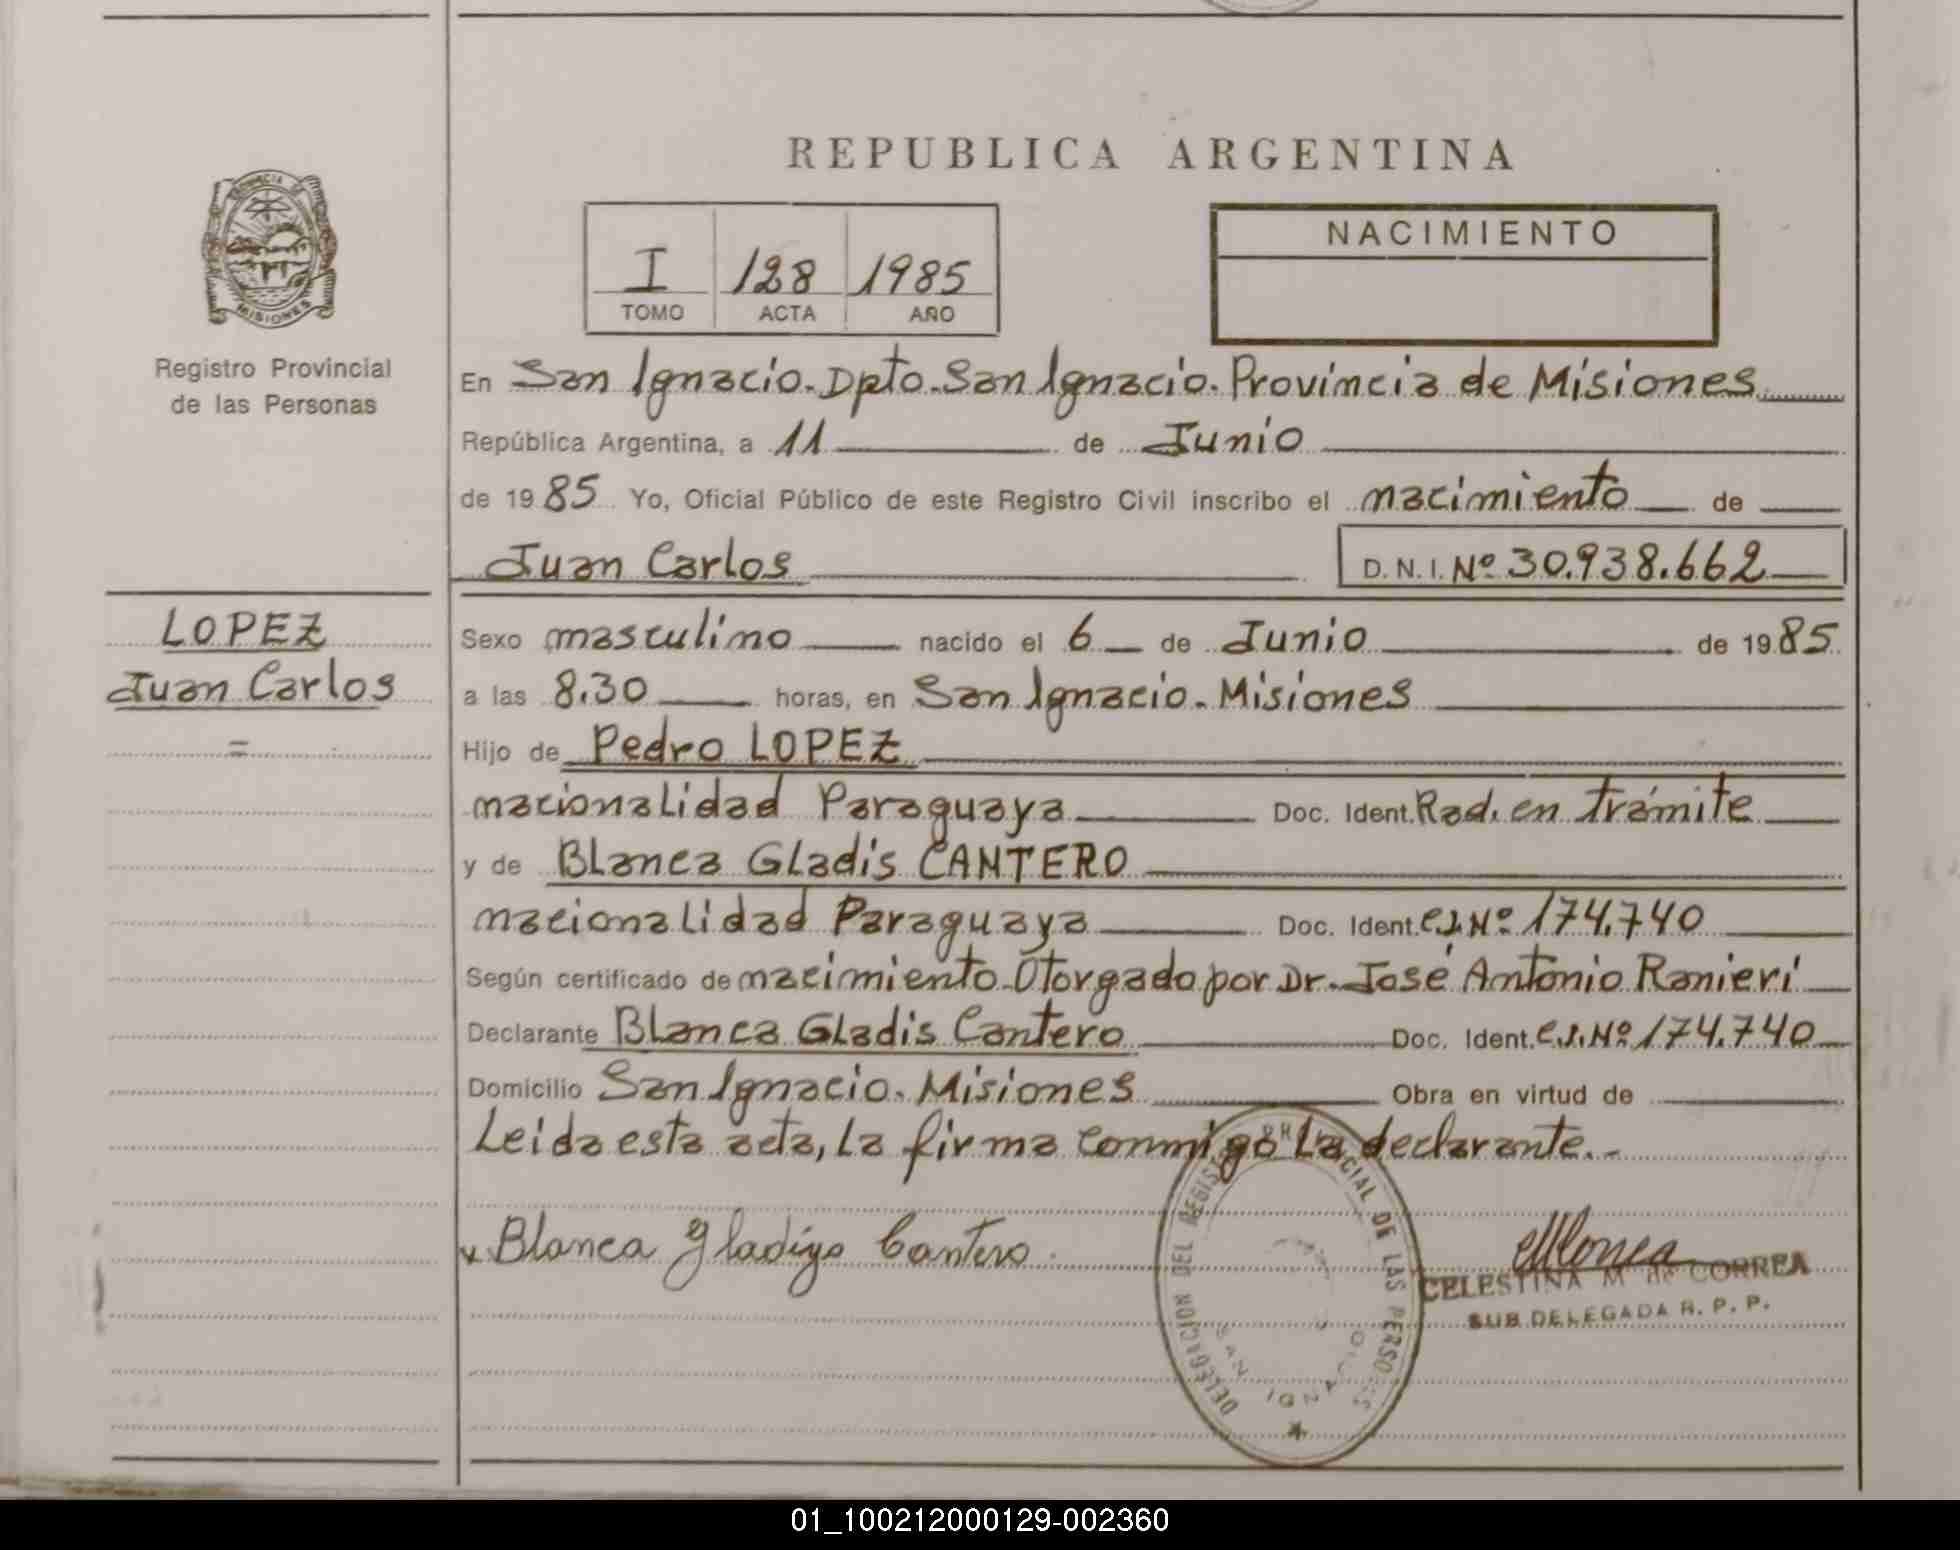 REPUBLICA ARGENTINA
PROVINCIA DE
MISIONES
Registro Provincial
de las Personas
NACIMIENTO
I 128 1985
TOMO ACTA AÑO
En San Ignacio. Dpto. San Ignacio. Provincia de Misiones
República Argentina, a 11 de Junio
de 1985 Yo, Oficial Público de este Registro Civil inscribo el nacimiento de
Juan Carlos D.N.I. Nº 30.938.662
LOPEZ
Juan Carlos
=
Sexo masculino nacido el 6 de Junio de 1985
a las 8.30 horas, en San Ignacio. Misiones
Hijo de Pedro LOPEZ
nacionalidad Paraguaya Doc. Ident. Rad. en trámite
y de Blanca Gladis CANTERO
nacionalidad Paraguaya Doc. Ident. C.I. Nº 174.740
Según certificado de nacimiento Otorgado por Dr. José Antonio Ranieri
Declarante Blanca Gladis Cantero Doc. Ident. C.I. Nº 174.740
Domicilio San Ignacio. Misiones Obra en virtud de
Leida esta acta, la firma conmigo la declarante.-
Blanca Gladiys Cantero
CELESTINA M. de CORREA
SUB DELEGADA R. P. P.
DELEGACION DEL REGISTRO PROVINCIAL DE LAS PERSONAS
SAN IGNACIO
01_100212000129-002360